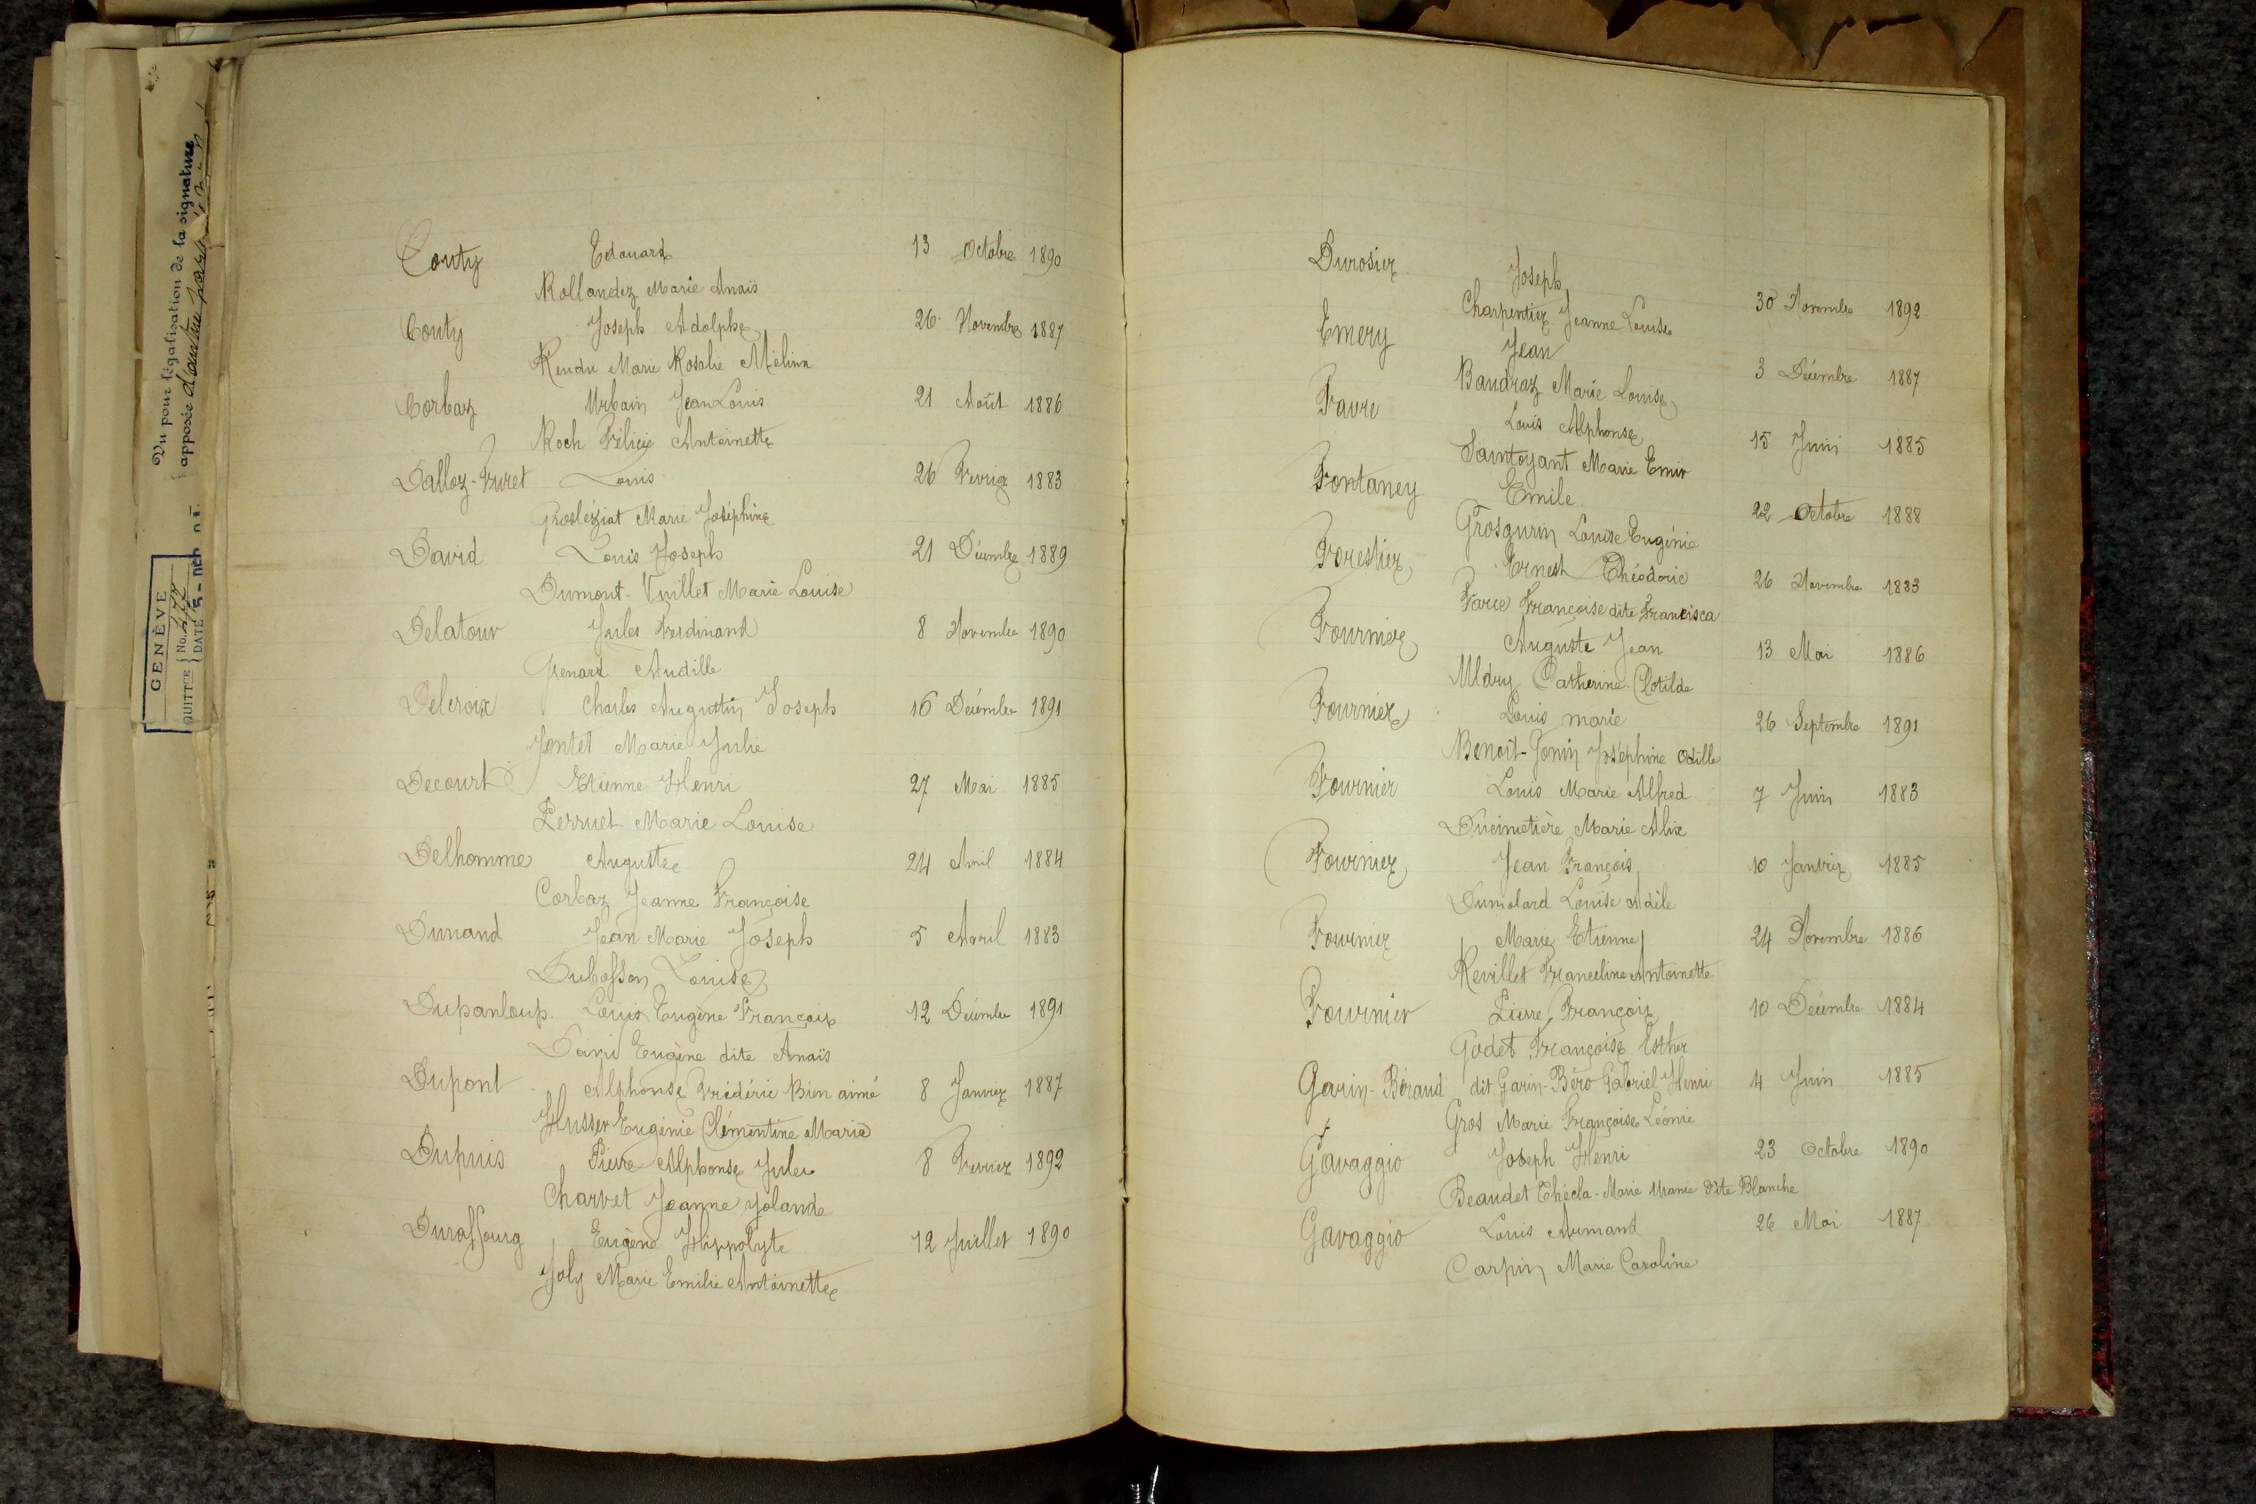 Vu pour légalisation de la signature
apposée d'autre part
GENÈVE
QUITTCE No.
DATE
Couty Edouard 13 Octobre 1890
Rollandez Marie Anaïs
Couty Joseph Adolphe 26 Novembre 1887
Rendu Marie Rosalie Mélina
Corbaz Urbain Jean Louis 21 Août 1886
Roch Félicie Antoinette
Dalloz-Furet Louis 26 Fevrier 1883
Grosléziat Marie Joséphine
David Louis Joseph 21 Décembre 1889
Dumont-Vuillet Marie Louise
Delatour Jules Ferdinand 8 Novembre 1890
Grenard Audille
Delcroix Charles Augustin Joseph 16 Décembre 1891
Jontet Marie Julie
Decourt Etienne Henri 27 Mai 1885
Perruet Marie Louise
Delhomme Auguste 24 Avril 1884
Corbaz Jeanne Françoise
Dunand Jean Marie Joseph 5 Avril 1883
Dubosson Louise
Dupanloup Louis Eugène François 12 Décembre 1891
David Eugène dite Anaïs
Dupont Alphonse Frédéric Bien aimé 8 Janvier 1887
Husser Eugénie Clémentine Marie
Dupuis Pierre Alphonse Jules 8 Fevrier 1892
Charvet Jeanne Yolande
Duraffourg Eugène Hippolyte 12 Juillet 1890
Joly Marie Emilie Antoinette
Durosier Joseph
Charpentier Jeanne Louise 30 Novembre 1892
Emery Jean
Baudraz Marie Louise 3 Décembre 1887
Favre Louis Alphonse
Saintoyant Marie Emir 15 Juin 1885
Fontaney Emile
Grosgurin Louise Eugénie 22 Octobre 1888
Forestier Ernest Théodoric
Favre Françoise dite Francisca 26 Novembre 1883
Fournier Auguste Jean 13 Mai 1886
Mldry Catherine Clotilde
Fournier Louis marie 26 Septembre 1891
Benoit-Gonin Joséphine Odille
Fournier Louis Marie Alfred 7 Juin 1883
Ducimetière Marie Alix
Fournier Jean François 10 Janvier 1885
Dumolard Louise Adèle
Fournier Marie Etienne 24 Novembre 1886
Revillet Franceline Antoinette
Fournier Pierre François 10 Décembre 1884
Godet Françoise Esther
Garin-Béraud dit Garin-Béro Gabriel Henri 4 Juin 1885
Gros Marie Françoise Léonie
Gavaggio Joseph Henri 23 Octobre 1890
Beaudet Thécla-Marie Uranie dite Blanche
Gavaggio Louis Armand 26 Mai 1887
Carpin Marie Caroline